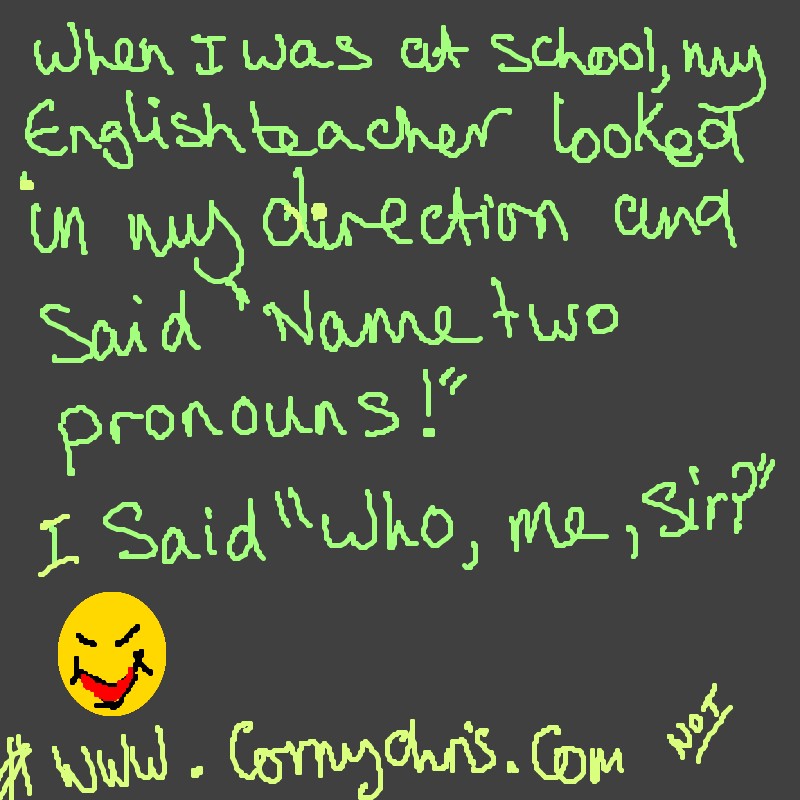 When I was at school, my
English teacher looked
in my direction and
said "Name two
pronouns!"
I said "Who, me, Sir?"
# www.Cornychris.Com NOI